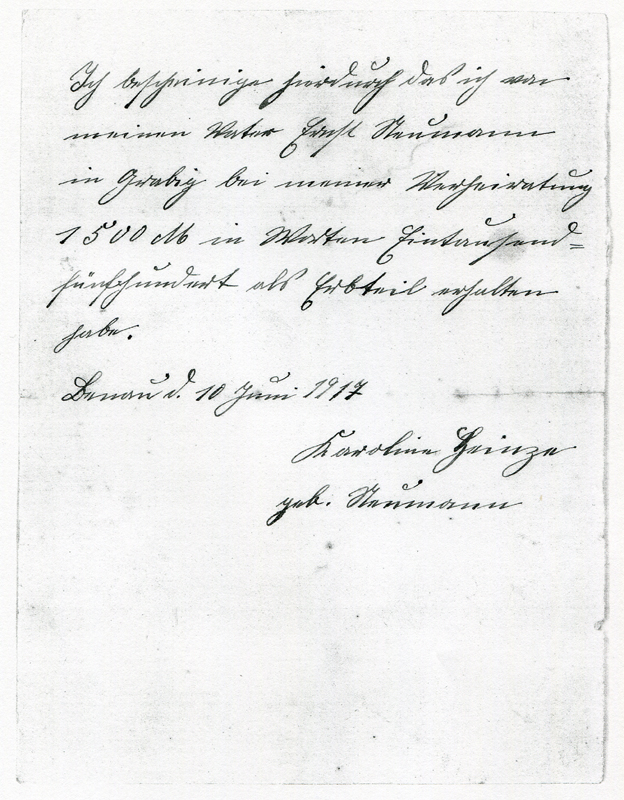 Ich bescheinige hierdurch das ich von
meinen Vater Ernst Neumann
in Grabig bei meiner Verheiratung
1500 M in Worten Eintausend=
fünfhundert als Erbteil erhalten
habe.
Benau d. 10 Juni 1917
Karoline Heinze
geb. Neumann